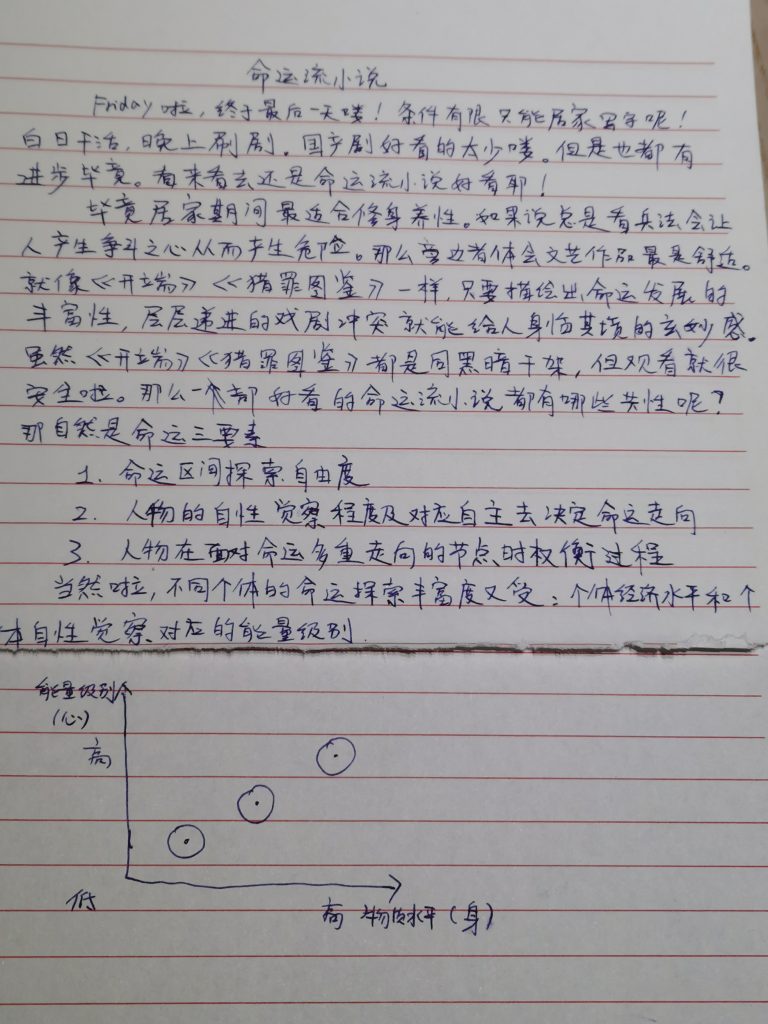 命运流小说
Friday啦，终于最后一天喽！条件有限只能居家写字呢！
白日干活，晚上刷剧。国产剧好看的太少喽。但是也都有
进步毕竟。看来看去还是命运流小说好看耶！
毕竟居家期间最适合修身养性。如果说总是看兵法会让
人产生争斗之心从而产生危险。那么旁边者体会文艺作品最是舒适。
就像《开端》《猎罪图鉴》一样，只要描绘出命运发展的
丰富性，层层递进的戏剧冲突就能给人身临其境的玄妙感。
虽然《开端》《猎罪图鉴》都是同黑暗干架，但观看就很
安全啦。那么一部好看的命运流小说都有哪些共性呢？
那自然是命运三要素
1. 命运区间探索自由度
2. 人物的自性觉察程度及对应自主去决定命运走向
3. 人物在面对命运多重走向的节点时权衡过程
当然啦，不同个体的命运探索丰富度又受：个体经济水平和个
体自性觉察对应的能量级别.
能量级别
(心)
高
低
高 物质水平（身）